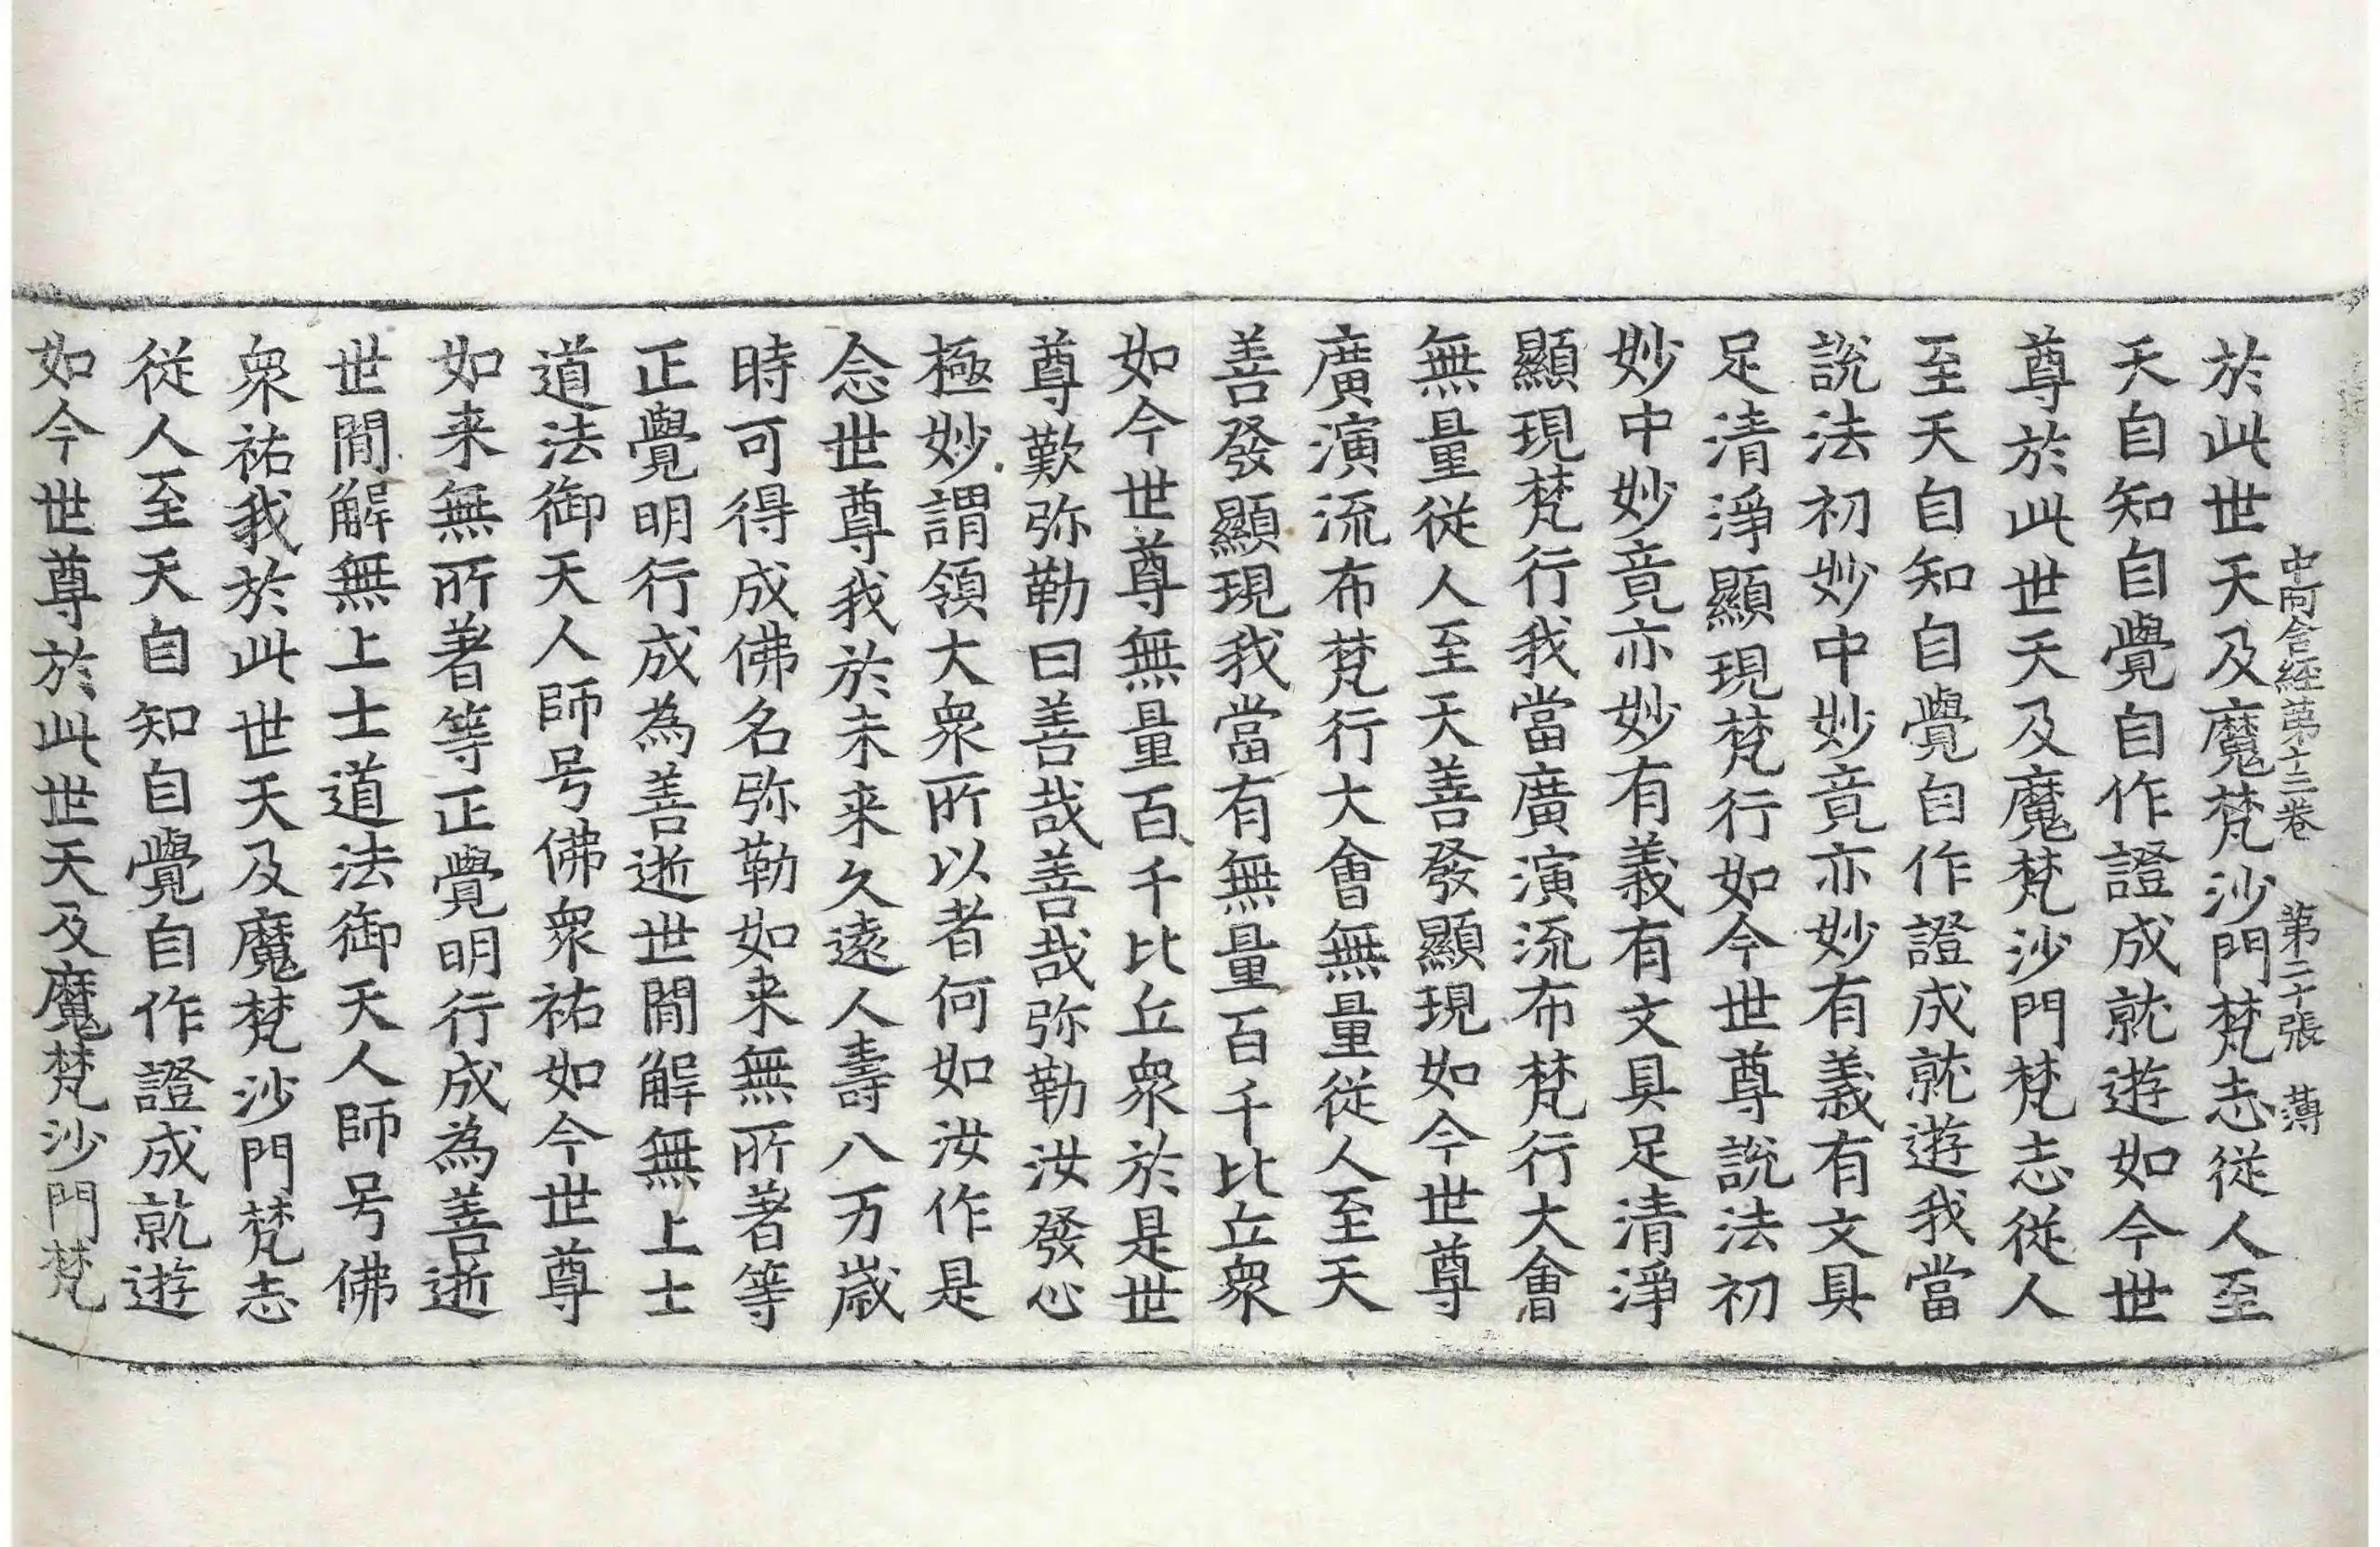 中阿含經第十三卷　第二十張　薄
於此世天及魔梵沙門梵志從人至
天自知自覺自作證成就遊如今世
尊於此世天及魔梵沙門梵志從人
至天自知自覺自作證成就遊我當
說法初妙中妙竟亦妙有義有文具
足清淨顯現梵行如今世尊說法初
妙中妙竟亦妙有義有文具足清淨
顯現梵行我當廣演流布梵行大會
無量從人至天善發顯現如今世尊
廣演流布梵行大會無量從人至天
善發顯現我當有無量百千比丘衆
如今世尊無量百千比丘衆於是世
尊歎弥勒曰善哉善哉弥勒汝發心
極妙謂領大衆所以者何如汝作是
念世尊我於未来久遠人壽八万歲
時可得成佛名弥勒如来無所著等
正覺明行成為善逝世間解無上士
道法御天人師号佛衆祐如今世尊
如来無所著等正覺明行成為善逝
世間解無上士道法御天人師号佛
衆祐我於此世天及魔梵沙門梵志
從人至天自知自覺自作證成就遊
如今世尊於此世天及魔梵沙門梵